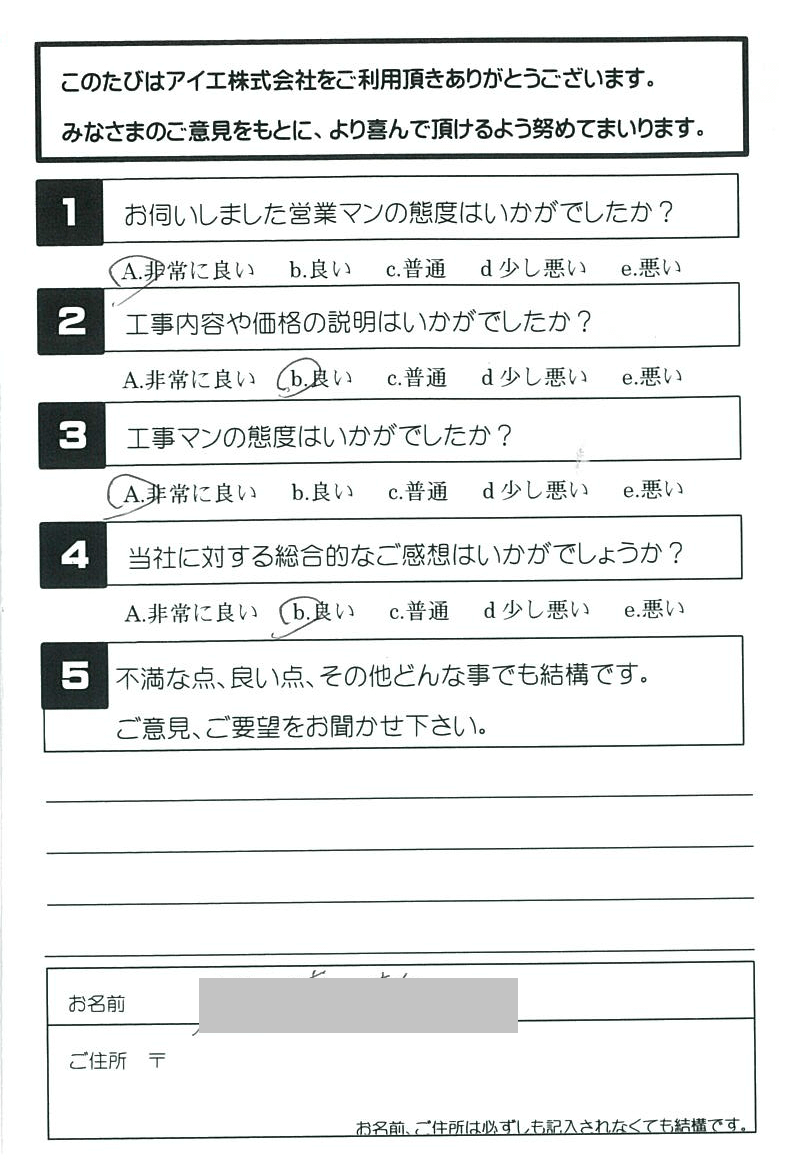 このたびはアイエ株式会社をご利用頂きありがとうございます。
みなさまのご意見をもとに、より喜んで頂けるよう努めてまいります。
1 お伺いしました営業マンの態度はいかがでしたか？
A.非常に良い b.良い c.普通 d 少し悪い e.悪い
2 工事内容や価格の説明はいかがでしたか？
A.非常に良い b.良い c.普通 d 少し悪い e.悪い
3 工事マンの態度はいかがでしたか？
A.非常に良い b.良い c.普通 d 少し悪い e.悪い
4 当社に対する総合的なご感想はいかがでしょうか？
A.非常に良い b.良い c.普通 d 少し悪い e.悪い
5 不満な点、良い点、その他どんな事でも結構です。
ご意見、ご要望をお聞かせ下さい。
お名前
ご住所 〒
お名前、ご住所は必ずしも記入されなくても結構です。